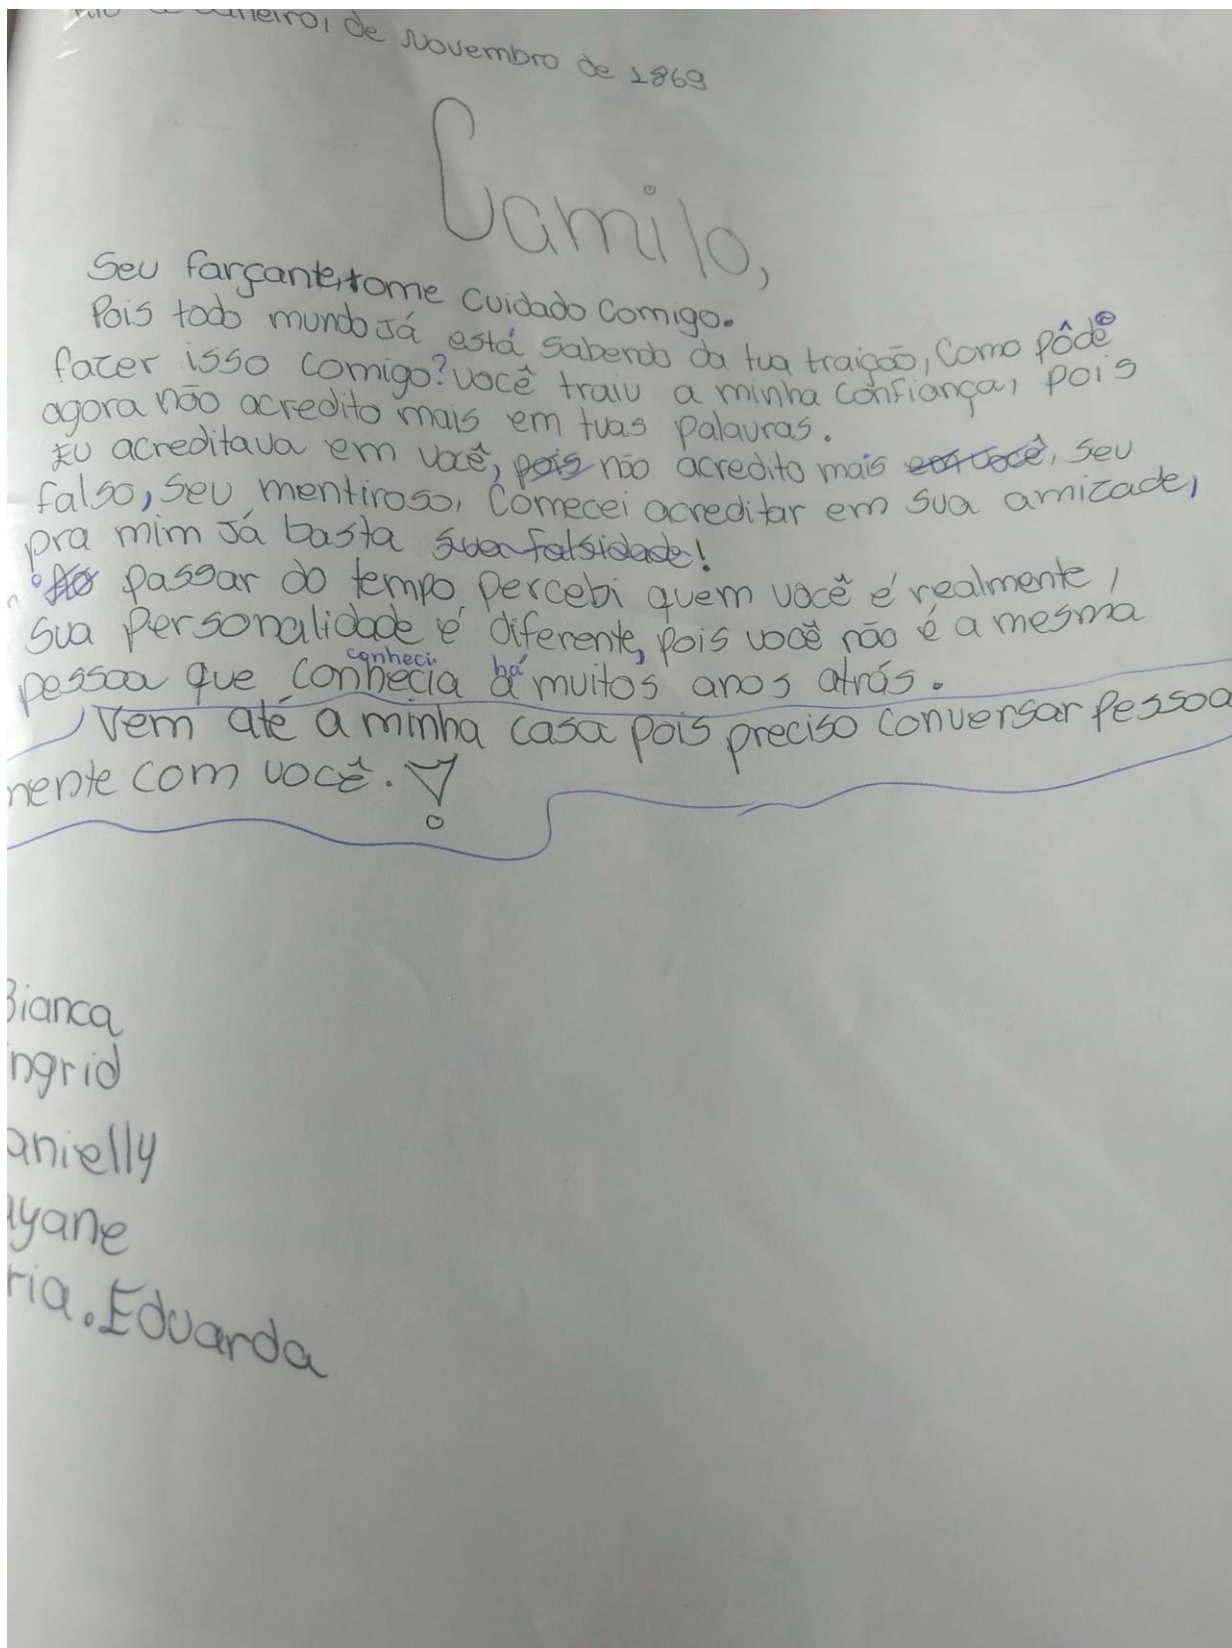 Rio de Janeiro, de Novembro de 1869
Camilo,
Seu farçante, tome cuidado comigo.
Pois todo mundo já está sabendo da tua traição, Como pôde
fazer isso comigo? você traiu a minha confiança, pois
agora não acredito mais em tuas palavras.
Eu acreditava em você, pois não acredito mais em você, seu
falso, seu mentiroso, Comecei acreditar em sua amizade,
pra mim já basta sua falsidade!
Ao passar do tempo percebi quem você é realmente,
sua personalidade é diferente, pois você não é a mesma
conheci há
pessoa que conhecia a muitos anos atrás.
Vem até a minha casa pois preciso conversar pessoa
mente com você. !
Bianca
Ingrid
anielly
ayane
ria. Eduarda